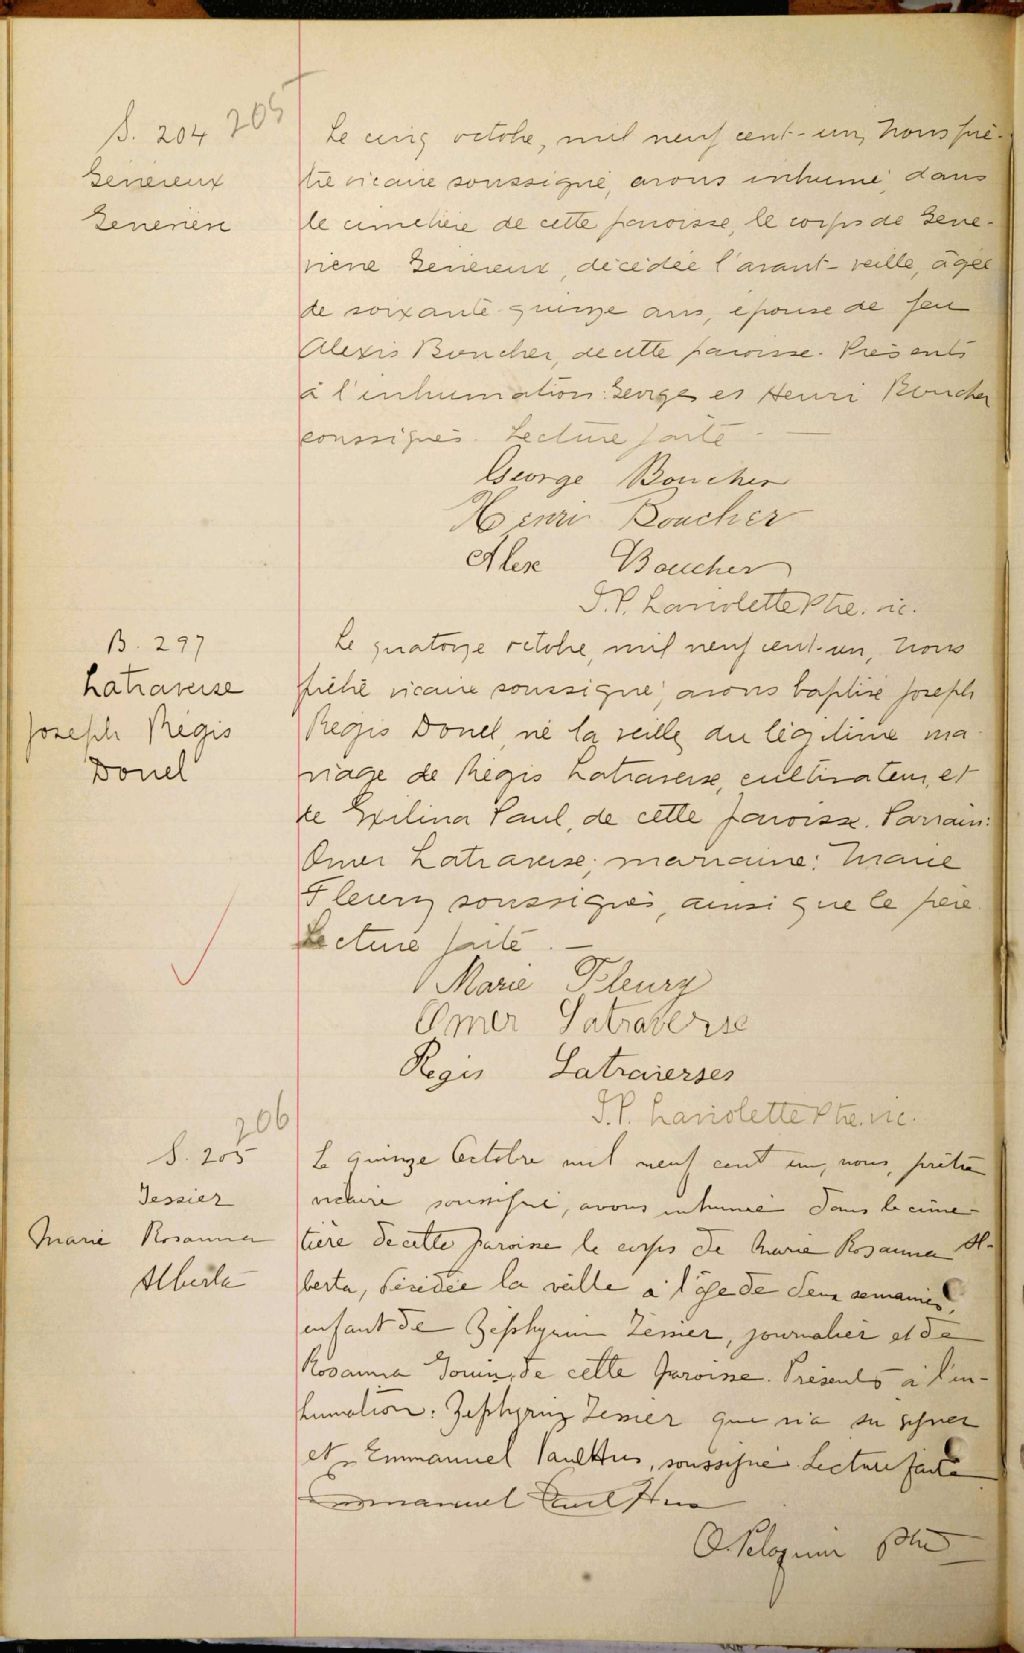 205
S. 204
Généreux
Geneviève
Le cinq octobre, mil neuf cent-un, Nous prê-
tre vicaire soussigné, avons inhumé, dans
le cimetière de cette paroisse, le corps de Gene-
viève Généreux, décédée l'avant-veille, âgée
de soixante quinze ans, épouse de feu
Alexis Boucher, de cette paroisse. Présents
à l'inhumation: Georges et Henri Boucher
soussignés. Lecture faite -
George Boucher
Henri Boucher
Alex Boucher
J.P. Laviolette Ptre. vic.
B. 297
Latraverse
Joseph Régis
Donel
Le quatorze octobre, mil neuf cent-un, Nous
prêtre vicaire soussigné, avons baptisé Joseph
Régis Donel, né la veille, du légitime ma-
riage de Régis Latraverse, cultivateur, et
de Exilina Paul, de cette paroisse. Parrain:
Omer Latraverse; marraine: Marie
Fleury soussignés, ainsi que le père.
Lecture faite. -
Marie Fleury
Omer Latraverse
Regis Latraverses
J.P. Laviolette Ptre. vic.
206
S. 205
Tessier
Marie Rosanna
Alberta
Le quinze Octobre mil neuf cent un, nous, prêtre
vicaire soussigné, avons inhumé dans le cime-
tière de cette paroisse le corps de Marie Rosanna Al-
berta, décédée la veille à l'âge de deux semaines,
enfant de Zéphyrin Tessier, journalier et de
Rosanna Gouin, de cette paroisse. Présents à l'in-
humation: Zéphyrin Tessier qui n'a su signer
et Emmanuel Paul Hus, soussigné. Lecture faite
Emmanuel Paul Hus
O. Peloquin Ptre